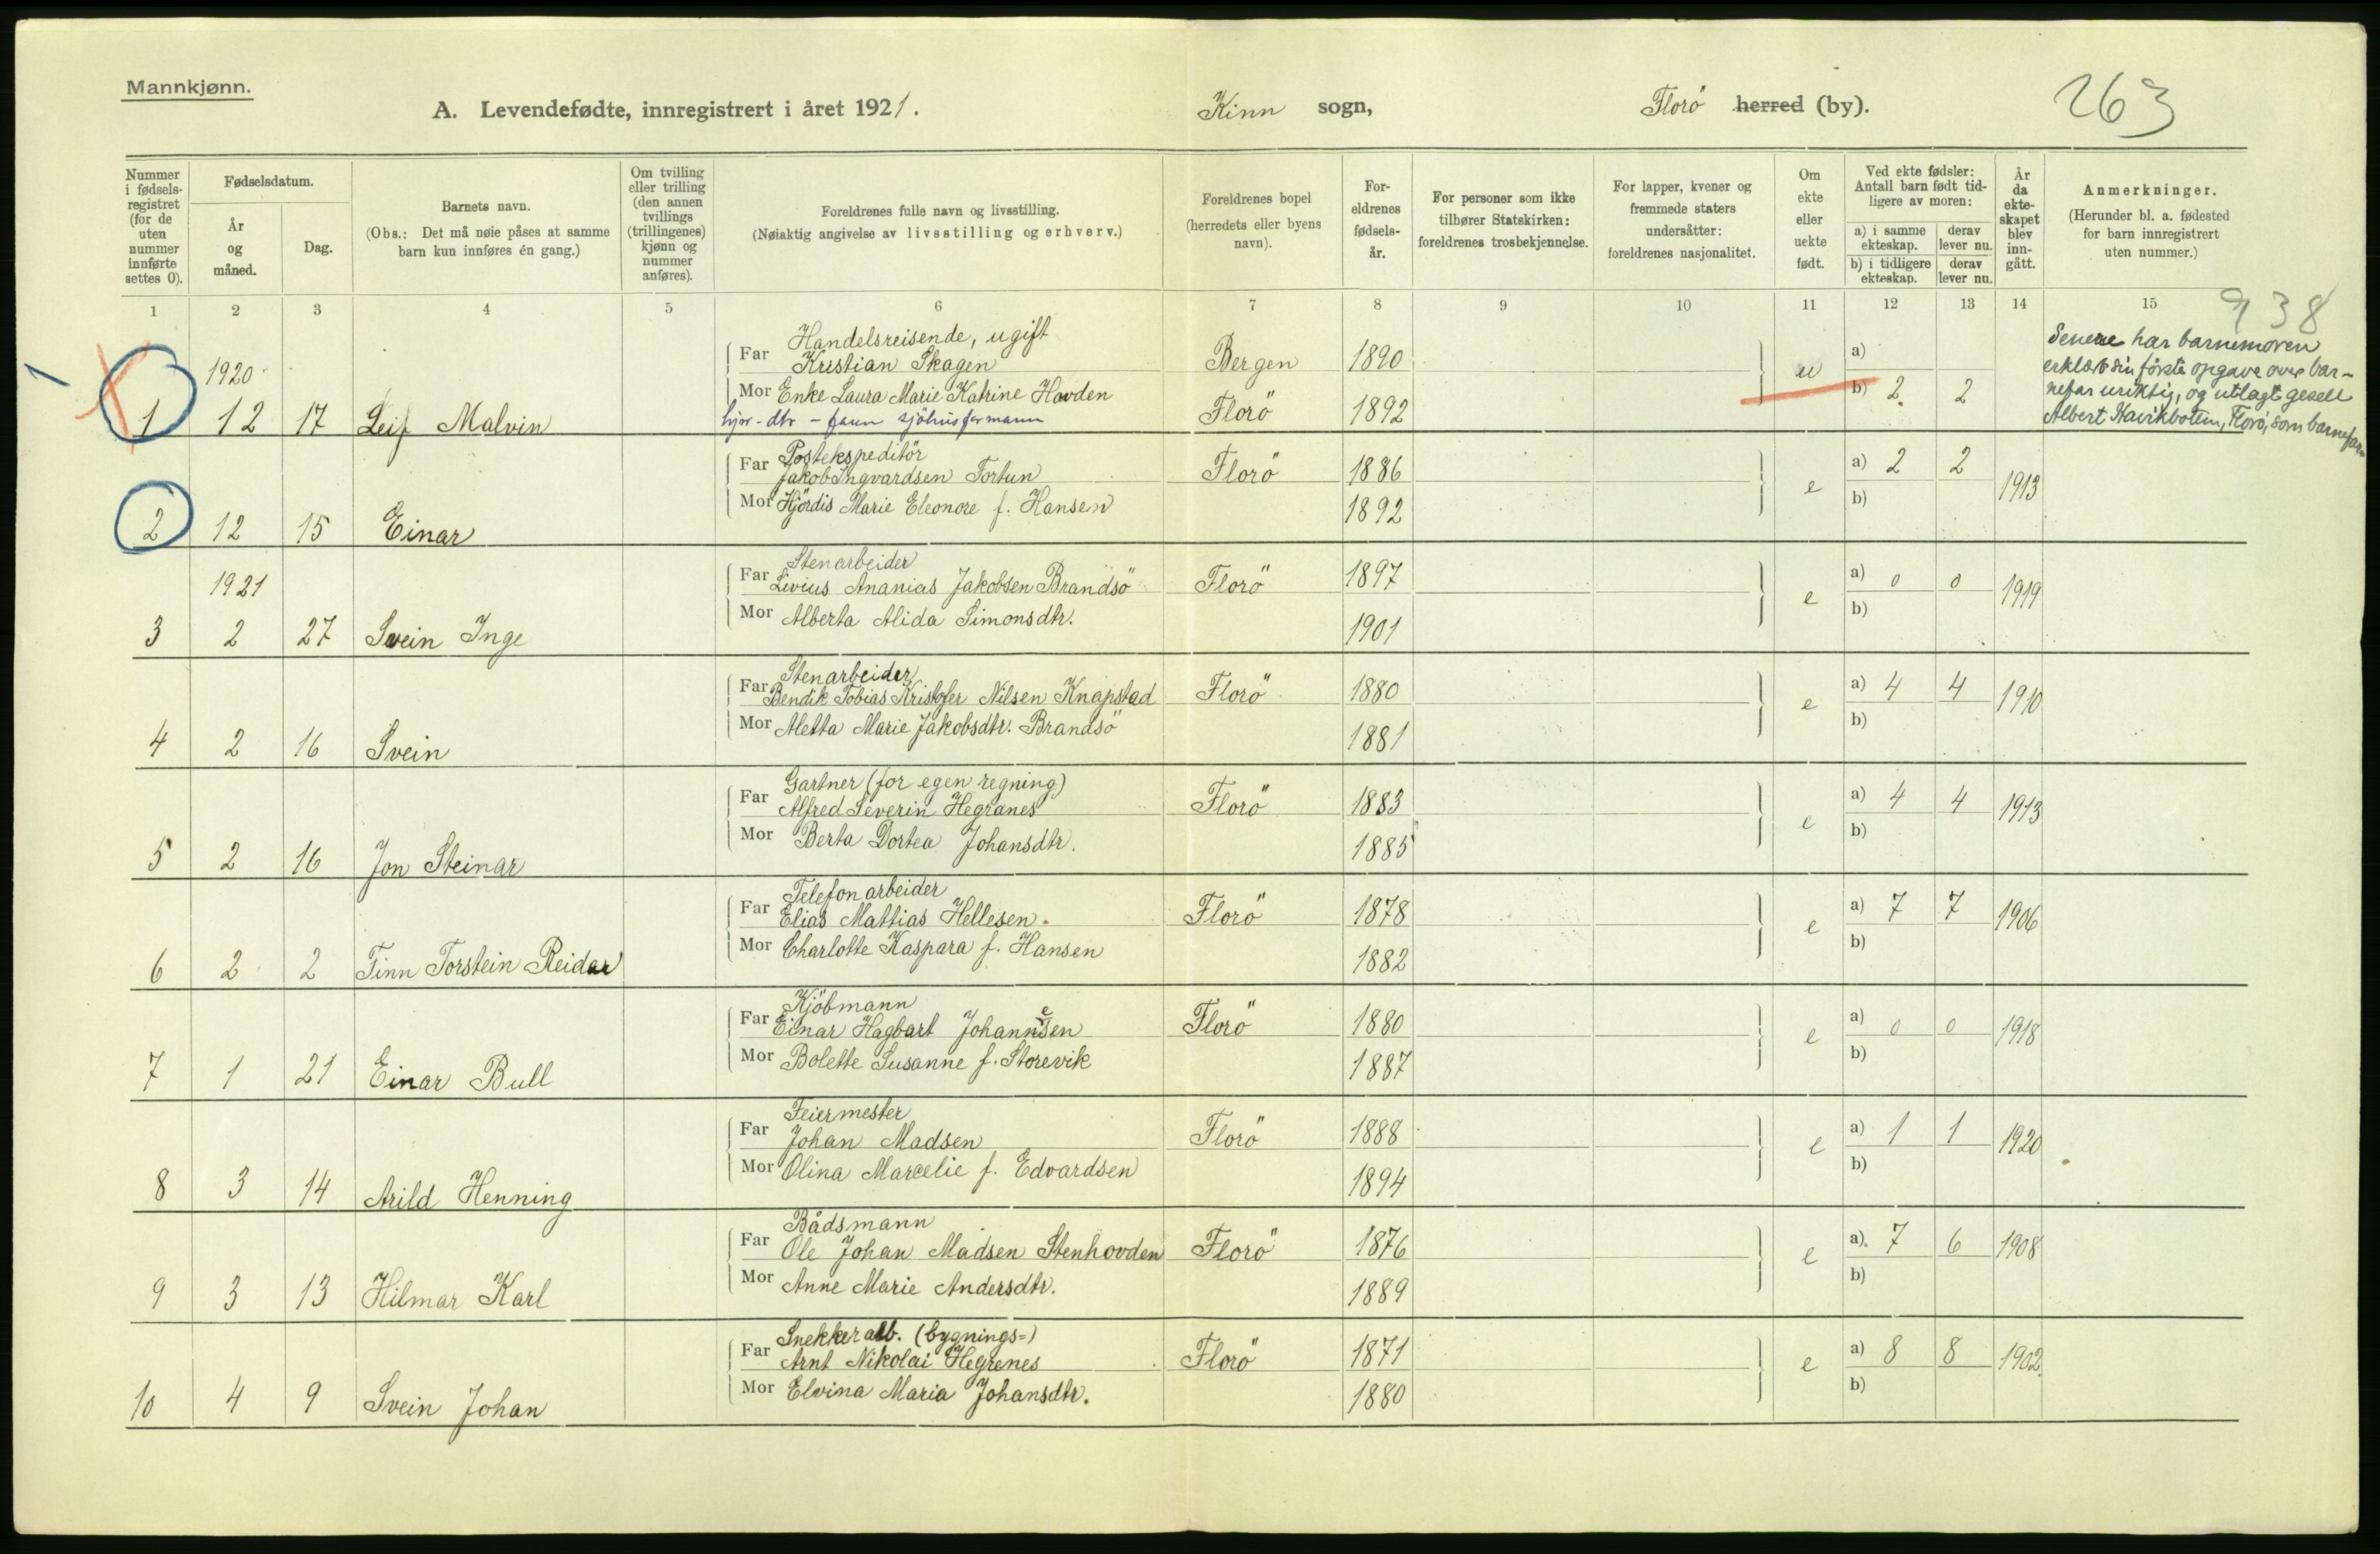 Mannkjønn.
A. Levendefødte, innregistrert i året 1921.
Kinn sogn,
Florö herred (by).
263
Nummer i fødsels-registret (for de uten nummer innførte settes 0).
Fødselsdatum.
År og måned.
Dag.
Barnets navn.
(Obs.: Det må nøie påses at samme barn kun innføres én gang.)
Om tvilling eller trilling (den annen tvillings (trillingenes) kjønn og nummer anføres).
Foreldrenes fulle navn og livsstilling.
(Nøiaktig angivelse av livsstilling og erhverv.)
Foreldrenes bopel (herredets eller byens navn).
For-eldrenes fødsels-år.
For personer som ikke tilhører Statskirken: foreldrenes trosbekjennelse.
For lapper, kvener og fremmede staters undersåtter: foreldrenes nasjonalitet.
Om ekte eller uekte født.
Ved ekte fødsler: Antall barn født tid-ligere av moren:
a) i samme ekteskap. derav lever nu.
b) i tidligere ekteskap. derav lever nu.
År da ekte-skapet blev inn-gått.
Anmerkninger.
(Herunder bl. a. fødested for barn innregistrert uten nummer.)
1 2 3 4 5 6 7 8 9 10 11 12 13 14 15
938
1
Handelsreisende, ugift
1920 Far Kristian Skagen Bergen 1890 u a)
Mor Enke Laura Marie Katrine Hovden b) 2 2
1 12 17 Leif Malvin Florö 1892
Senere har barnemoren
erklært sin förste opgave over bar-
nefar uriktig, og utlagt gesell
Albert Havikbotten, Florö, som barnefar.
Postekspeditör
Far Jakob Ingvardsen Fortun Florö 1886 e a) 2 2 1913
Mor Hjördis Marie Eleonore f. Hansen 1892 b)
2 12 15 Einar
Stenarbeider
1921 Far Livius Ananias Jakobsen Brandsö Florö 1897 e a) 0 0 1919
Mor Alberta Alida Simonsdtr. 1901 b)
3 2 27 Svein Inge
Stenarbeider
Far Bendik Tobias Kristofer Nilsen Knapstad Florö 1880 e a) 4 4 1910
Mor Aletta Marie Jakobsdtr. Brandsö 1881 b)
4 2 16 Svein
Gartner (for egen regning)
Far Alfred Severin Hegranes Florö 1883 e a) 4 4 1913
Mor Berta Dortea Johansdtr. 1885 b)
5 2 16 Jon Steinar
Telefonarbeider
Far Elias Mattias Hellesen. Florö 1878 e a) 7 7 1906
Mor Charlotte Kaspara f. Hansen 1882 b)
6 2 2 Finn Torstein Reidar
Kjöbmann
Far Einar Hagbart Johannesen Florö 1880 e a) 0 0 1918
Mor Bolette Susanne f. Storevik 1887 b)
7 1 21 Einar Bull
Feiermester
Far Johan Madsen Florö 1888 e a) 1 1 1920
Mor Olina Marcelie f. Edvardsen 1894 b)
8 3 14 Arild Henning
Bådsmann
Far Ole Johan Madsen Stenhovden Florö 1876 e a) 7 6 1908
Mor Anne Marie Andersdtr. 1889 b)
9 3 13 Hilmar Karl
Snekkerarb. (bygnings=)
Far Arnt Nikolai Hegrenes Florö 1871 e a) 8 8 1902.
Mor Elvina Maria Johansdtr. 1880 b)
10 4 9 Svein Johan